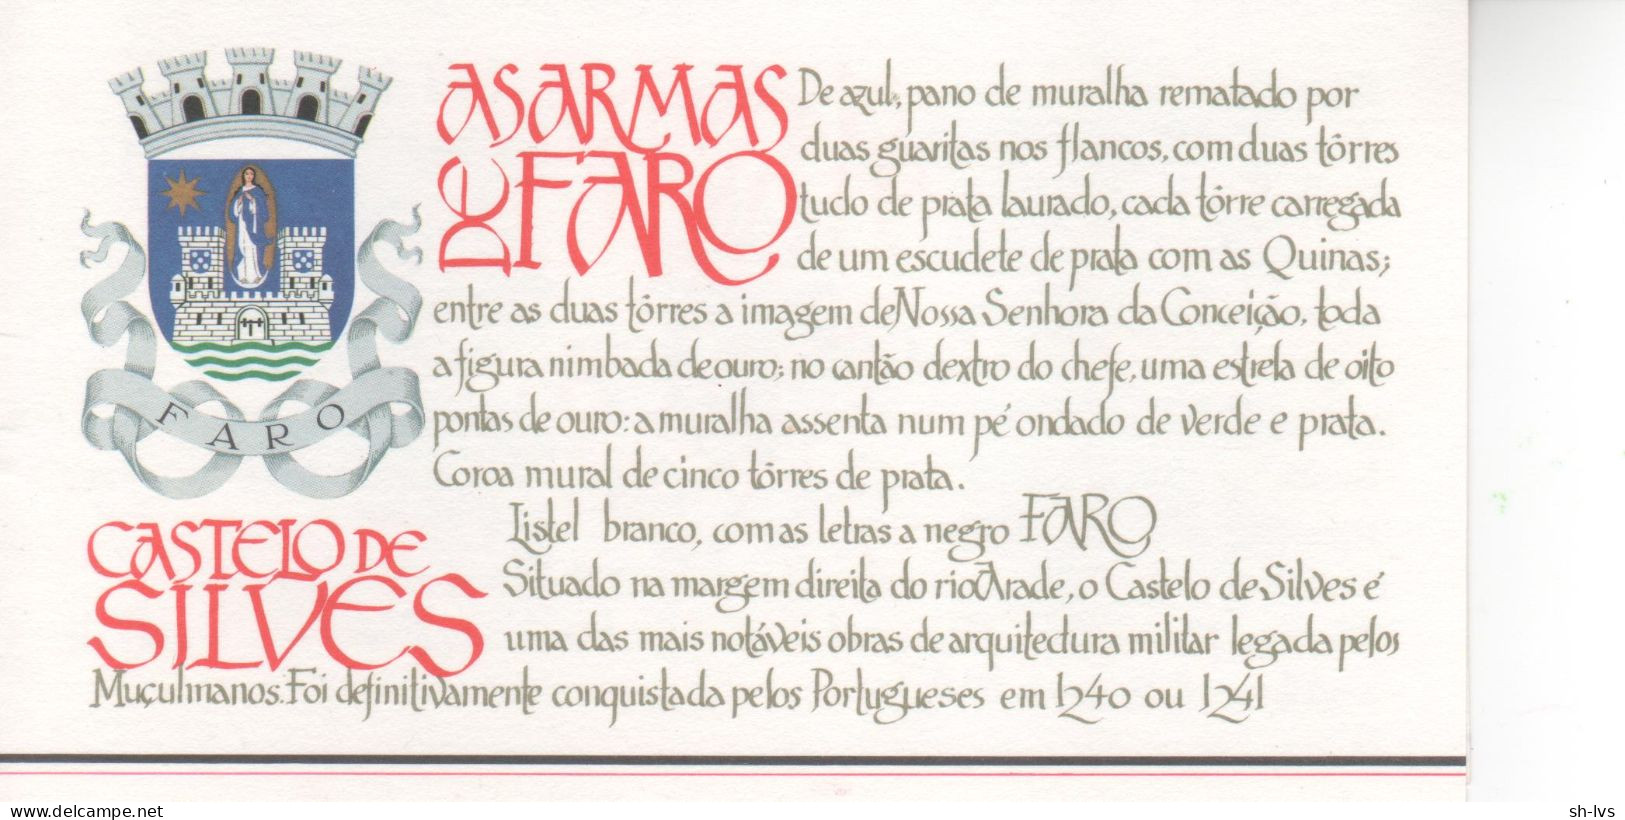 AS ARMAS
DE FARO
De azul, pano de muralha rematado por
duas guaritas nos flancos, com duas tôrres
tudo de prata laurado, cada tôrre carregada
de um escudete de prata com as Quinas;
entre as duas tôrres a imagem de Nossa Senhora da Conceição, toda
a figura nimbada de ouro; no cantão dextro do chefe, uma estrela de oito
pontas de ouro: a muralha assenta num pé ondado de verde e prata.
Coroa mural de cinco tôrres de prata.
Listel branco, com as letras a negro FARO
FARO
CASTELO DE
SILVES
Situado na margem direita do rio Arade, o Castelo de Silves é
uma das mais notáveis obras de arquitedura militar legada pelos
Muçulmanos. Foi definitivamente conquistada pelos Portugueses em 1240 ou 1241
www.delcampe.net
sh-lvs